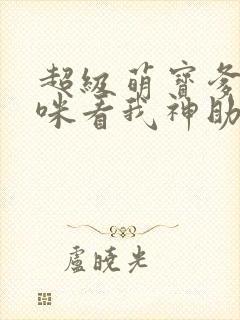 超级萌寶爹
咪看我神助
盧曉光